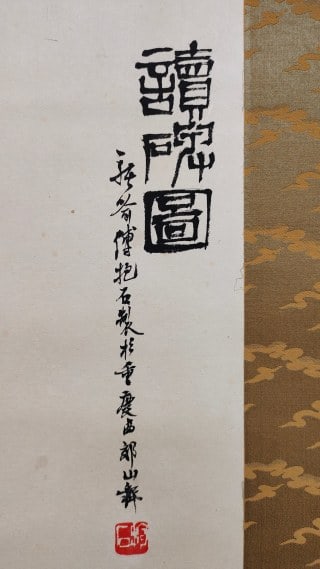 讀碑圖
新喻傅抱石製於重慶西郊山齋
抱石